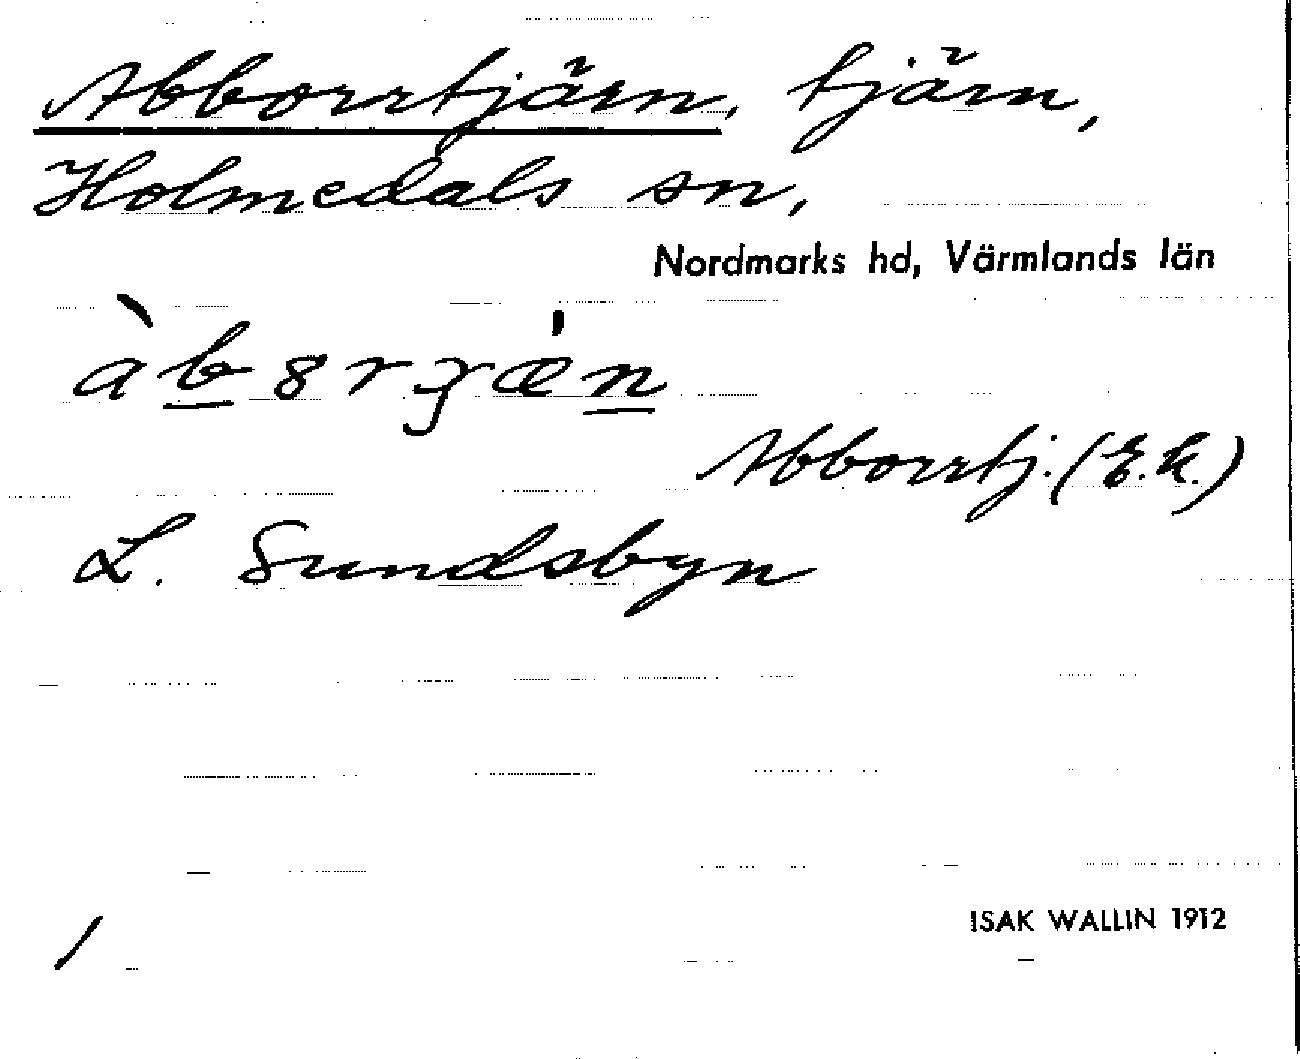 Abborrtjärn, tjärn,
Holmedals sn,
Nordmarks hd, Värmlands län
Abborrtj. (E.k.)
L. Sundsbyn
ISAK WALLIN 1912
1